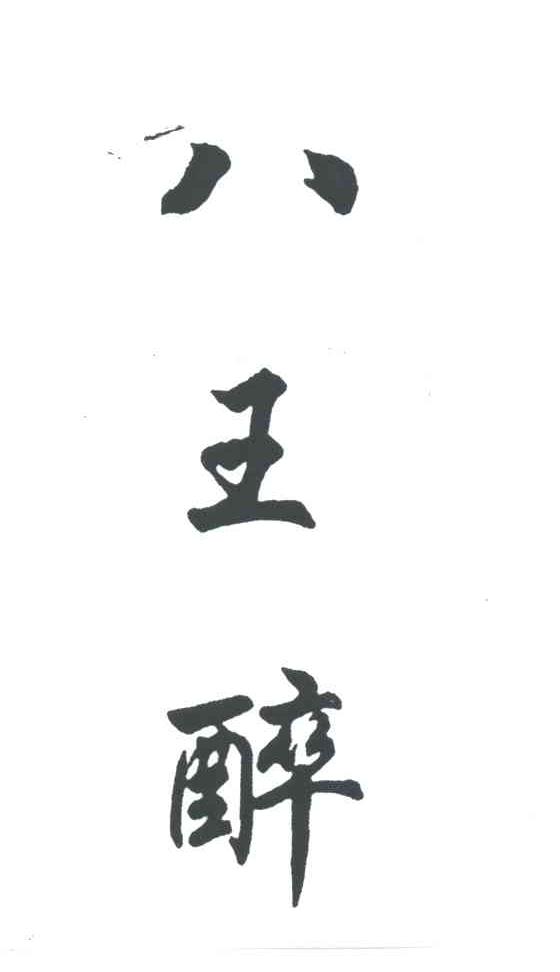 八王醉